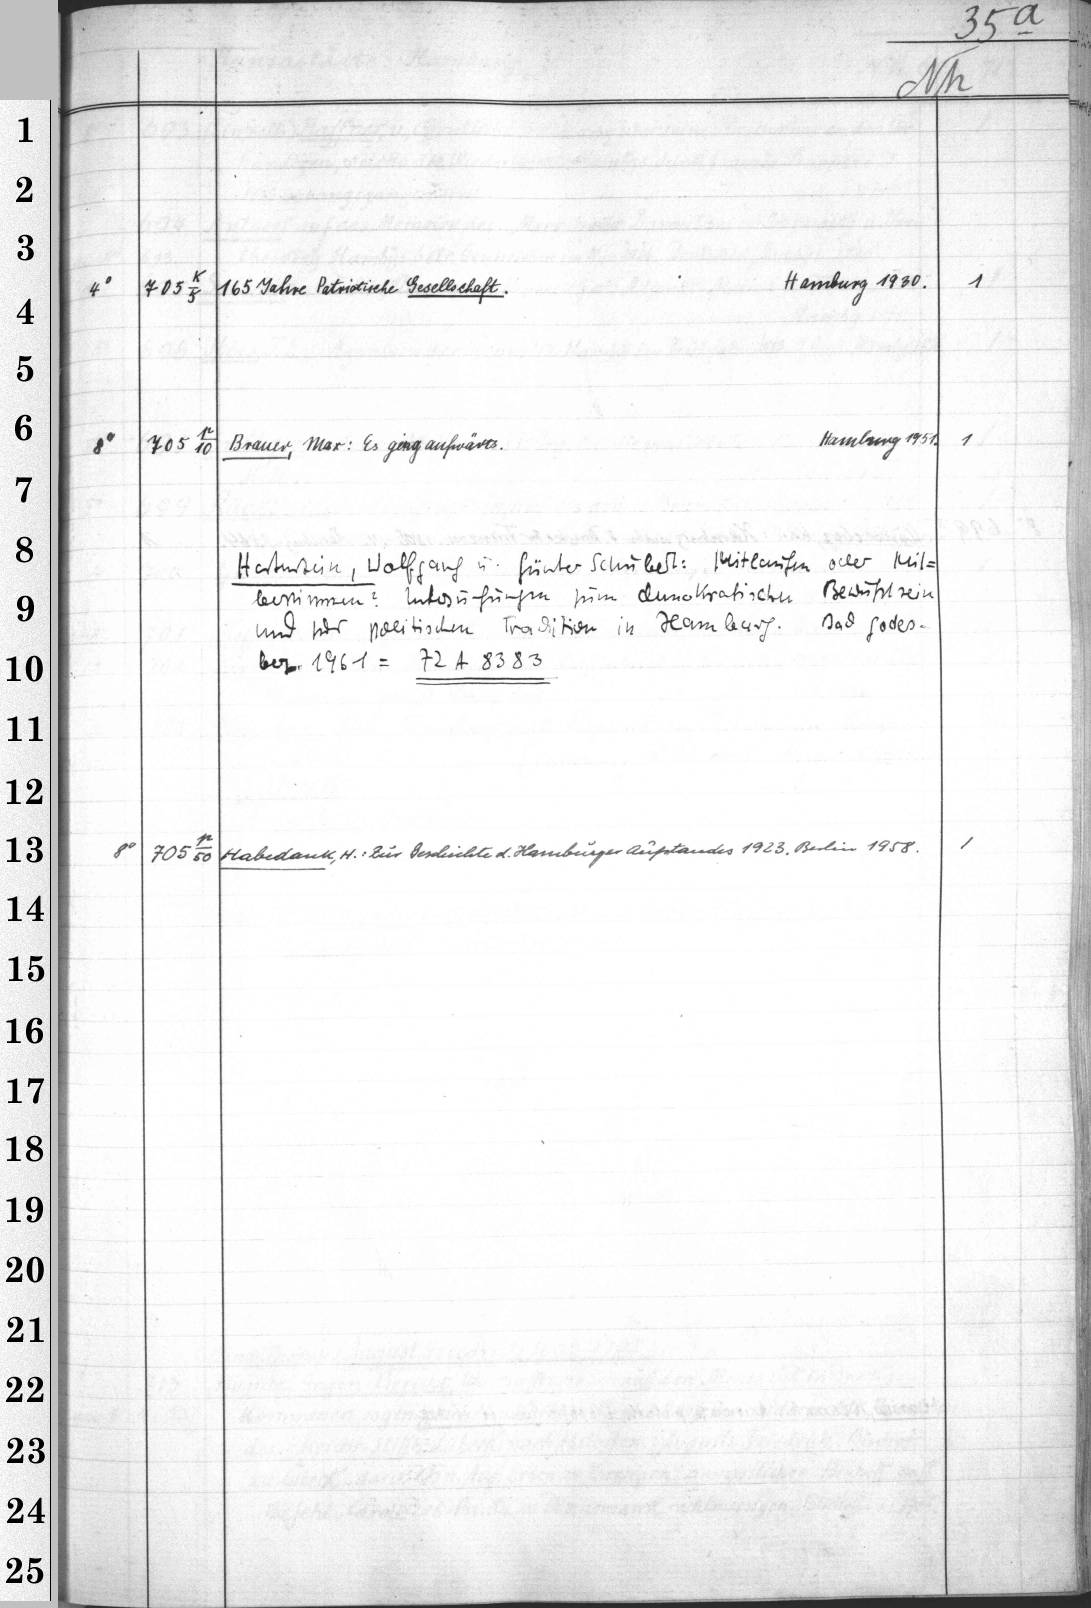 35 a
Nh
1
2
3
4° 705 K/5 165 Jahre Patriotische Gesellschaft. Hamburg 1930. 1
4
5
6
8° 705 p/10 Brauer, Max: Es ging aufwärts. Hamburg 1951. 1
7
8
Hartenstein, Wolfgang u. Günter Schubert: Mitlaufen oder Mit=
bestimmen? Untersuchungen zum demokratischen Bewußtsein
9
und zur politischen Tradition in Hamburg. Bad Godes-
10
berg. 1961 = 72 A 8383
11
12
13 8° 705 p/50 Habedank, H.: Zur Geschichte d. Hamburger Aufstandes 1923. Berlin 1958. 1
14
15
16
17
18
19
20
21
22
23
24
25